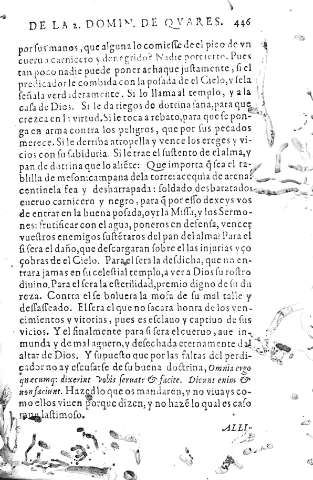 DE LA 2. DOMIN. DE QVARES. 446
por sus manos, que alguna lo comiesse de el pico de vn
cueruo carnicero y denegrido? Nadie por cierto. Pues
tan poco nadie puede poner achaque justamente, si el
predicador le combida con la posada de el Cielo, y se la
señala verdaderamente. Si lo llama al templo, y a la
casa de Dios. Si le da riegos de dotrina sana, para que
crezca en la virtud. Si le toca a rebato, para que se pon-
ga en arma contra los peligros, que por sus pecados
merece. Si le derriba atropella y vence los ereges y vi-
cios con su sabiduria. Si le trae el sustento de el alma, y
pan de datrina que lo aliẽte: Que importa q̃ sea el ta-
blilla de meson: campana de la torre: acequia de arena:
centinela fea y desharrapada: soldado desbaratado:
cueruo carnicero y negro, para q̃ por esso dexeys vos
de entrar en la buena posada, oyr la Missa, y los Sermo-
nes: frutificar con el agua, poneros en defensa, vencer
vuestros enemigos sustẽtaros del pan del alma: Para el
si sera el daño, que descargaran sobre el las injurias y ço
çobras de el Cielo. Para el sera la desdicha, que no en-
trara jamas en su celestial templo, a ver a Dios su rostro
diuino. Para el sera la esterilidad, premio digno de su du
reza. Contra el se boluera la mofa de su mal talle y
desasseado. El sera el que no sacara honra de los ven-
cimientos y vitorias, pues es esclauo y captiuo de sus
vicios. Y el finalmente para si sera el cueruo, aue in-
munda y de mal aguero, y desechada eternamente del
altar de Dios. Y supuesto que por las faltas del predi-
cador no ay escusarse de su buena doctrina, Omnia ergo
quæcumq; dixerint vobis seruate & facite. Dicunt enim &
non faciunt. Hazed lo que os mandaren, y no viuays co-
mo ellos viuen porque dizen, y no hazẽ lo qual es caso
muy lastimoso.
ALLI-